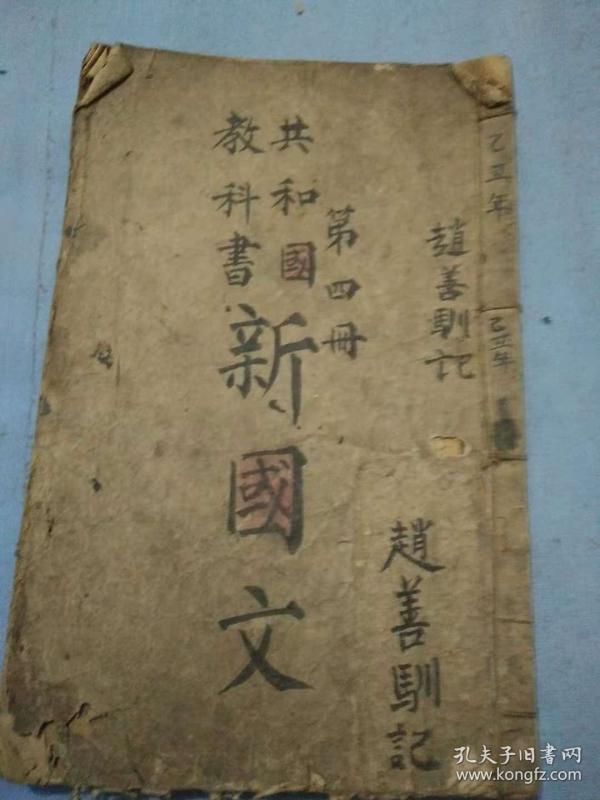 乙丑年
乙丑年
趙善馴記
趙善馴記
第四冊
共和國
教科書
新國文
孔夫子旧书网
www.kongfz.com